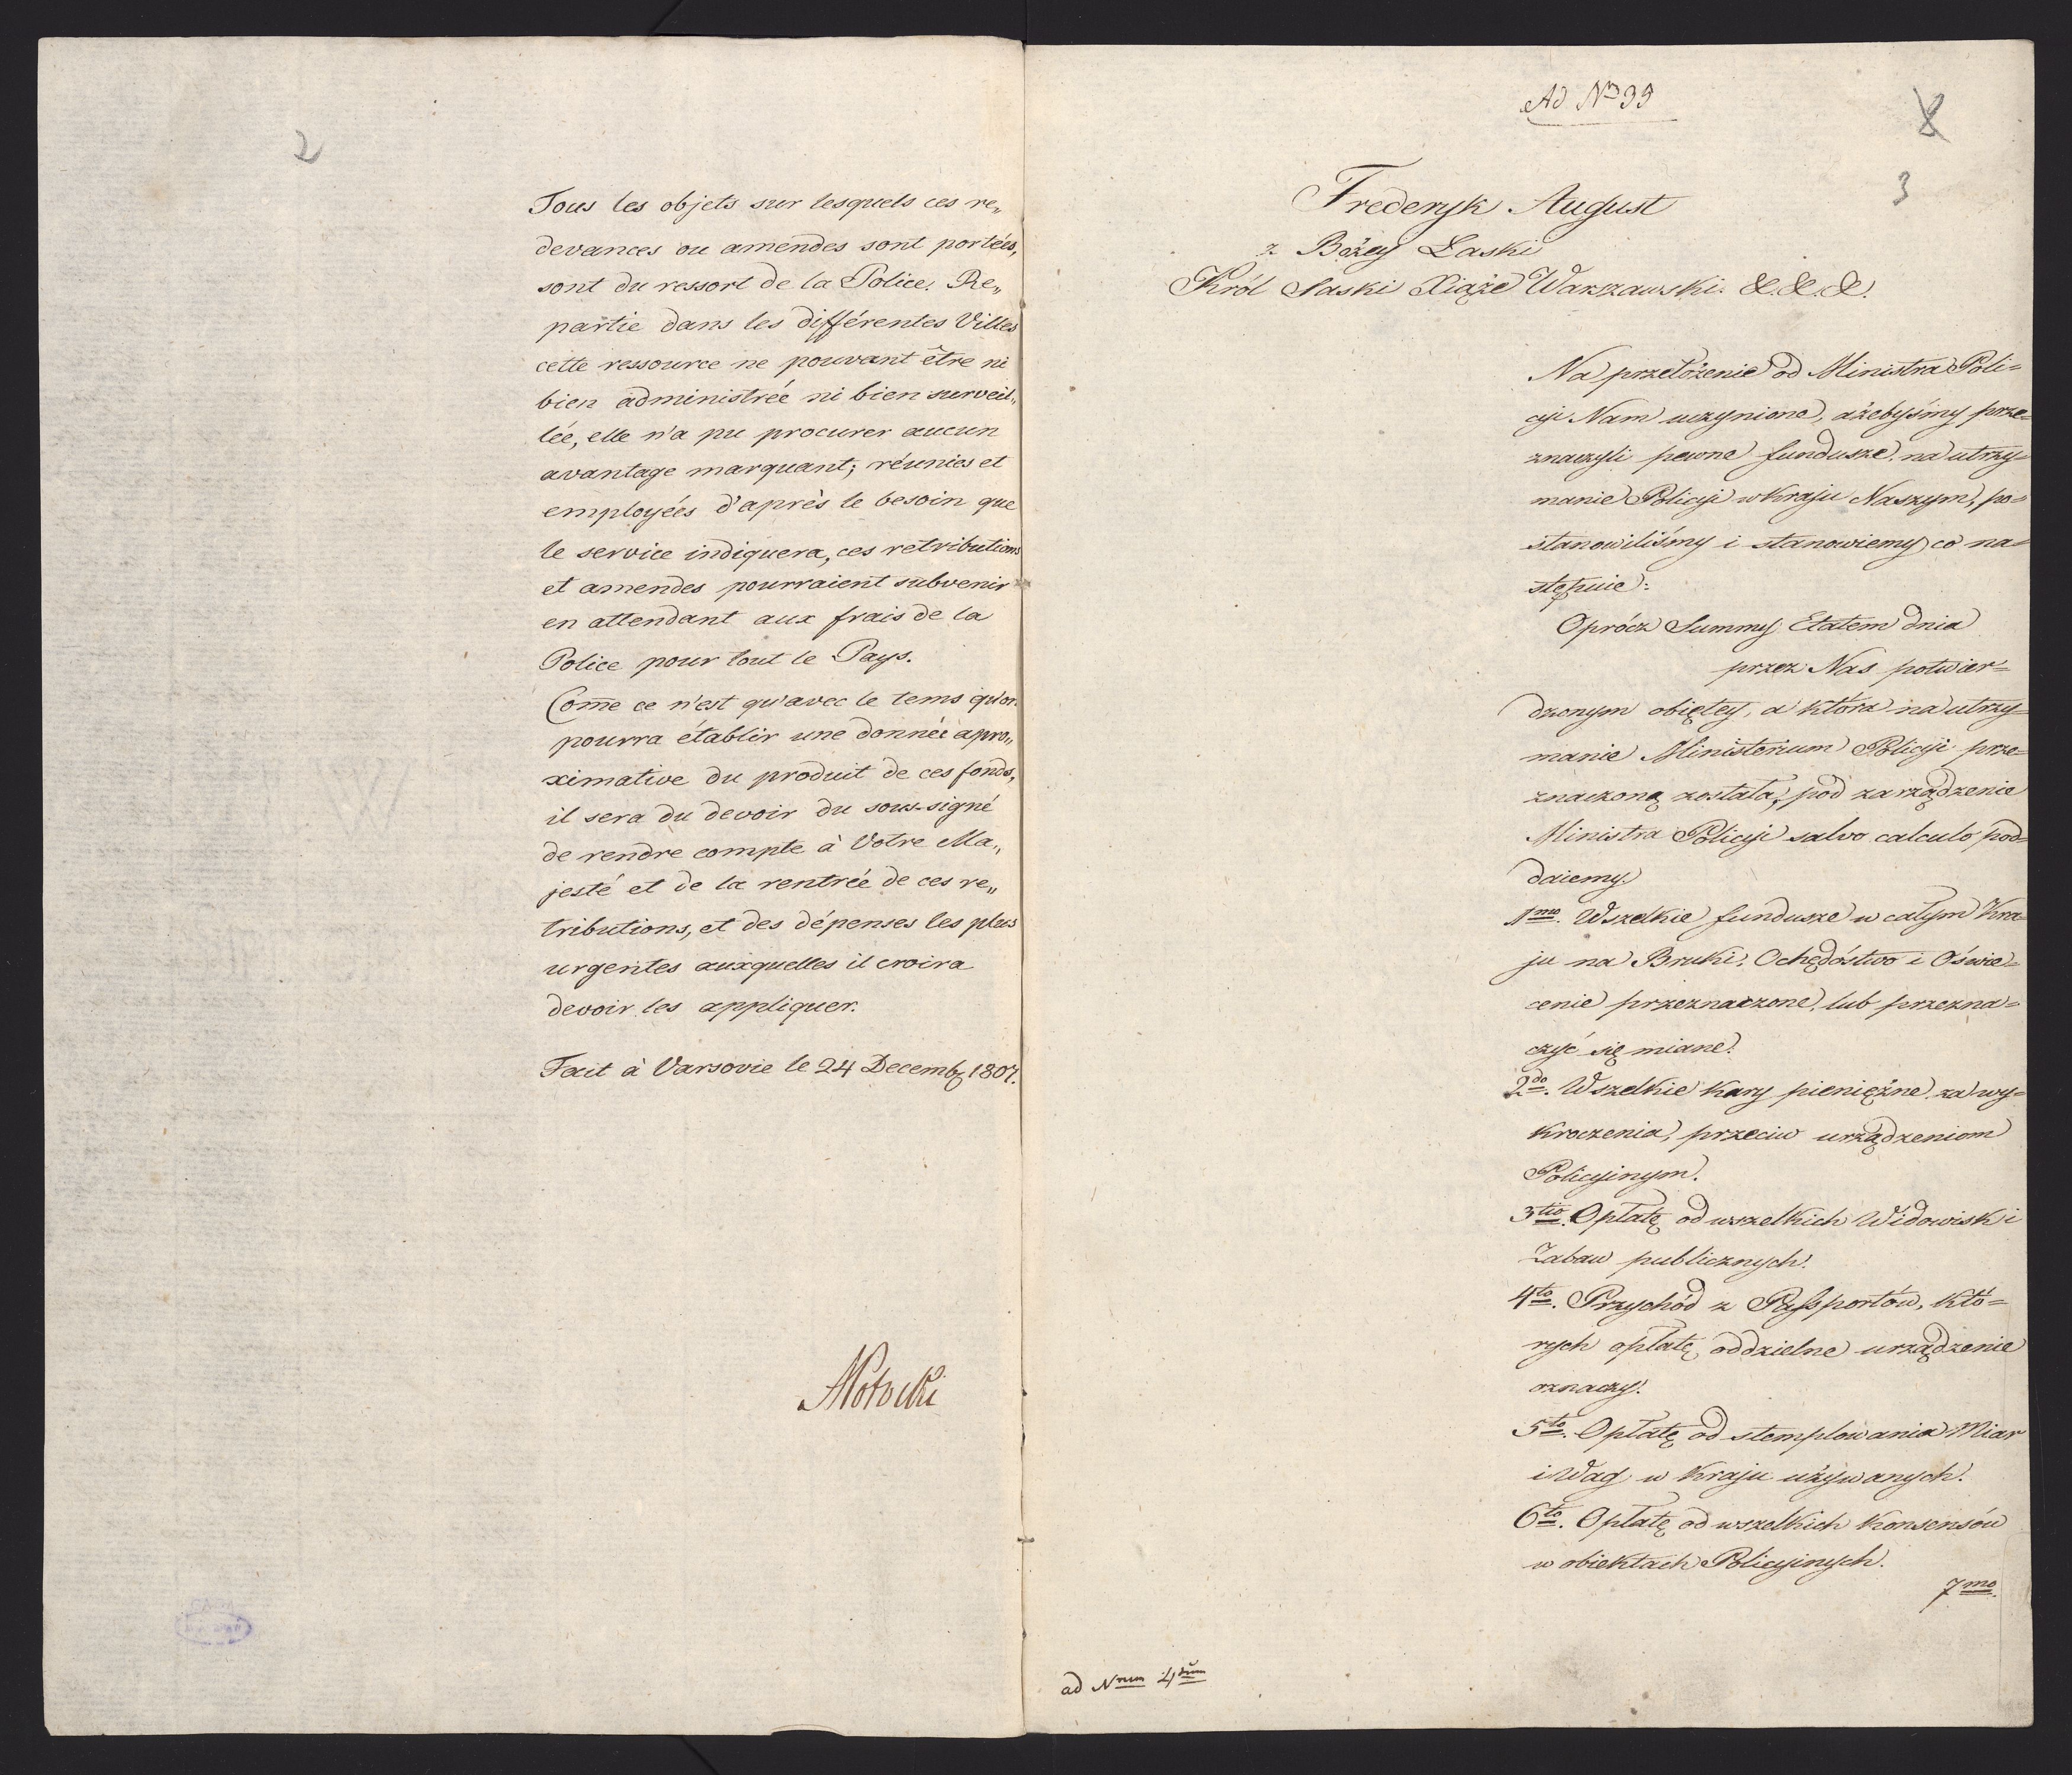 2
Tous les objets sur lesquels ces re„
devances ou amendes sont portées,
sont du ressort de la Police. Re„
partie dans les différentes Villes
cette ressource ne pouvant être ni
bien administrée ni bien surveil„
lée, elle n'a pu procurer aucun
avantage marquant; réunies et
employées d'après le besoin que
le service indiquera, ces retributions
et amendes pourraient subvenir
en attendant aux frais de la
Police pour tout le Pays.
Com̄e ce n'est qu'avec le tems qu'on
pourra établir une donnée apro„
ximative du produit de ces fonds,
il sera du devoir du sous-signé
de rendre compte à Votre Ma„
jesté et de la rentrée de ces re„
tributions, et des dépenses les plus
urgentes auxquelles il croira
devoir les appliquer.
Fait à Varsovie le 24 Decemb. 1807.
APotocki
Ad Nm 39
3
Frederyk August
z Bożey Łaski
Król Saski Xiąże Warszawski &. &. &.
Na przełożenie od Ministra Poli=
cyi Nam uczynione, ażebyśmy prze=
znaczyli pewne fundusze na utrzy=
manie Policyi w Kraju Naszym, po=
stanowiliśmy i stanowiemy co na=
stępuie:
Oprócz Summy Etatem dnia
przez Nas potwier=
dzonym obiętey, a która na utrzy=
manie Ministerium Policyi prze=
znaczoną została, pod zarządzenie
Ministra Policyi salvo calculo pod=
daiemy.
1mo. Wszelkie fundusze w całym Kra=
ju na Bruki, Ochędóstwo i Oświe=
cenie przeznaczone, lub przezna=
czyć się miane.
2do. Wszelkie kary pieniężne za wy=
kroczenia, przeciw urządzeniom
Policyinym.
3tio. Opłatę od wszelkich Widowisk i
Zabaw publicznych.
4to. Przychód z Passportów, któ=
rych opłatę oddzielne urządzenie
oznaczy.
5to. Opłatę od stemplowania Miar
i Wag w Kraju używanych.
6to. Opłatę od wszelkich Konsensów
w obiektach Policyinych.
7mo.
ad Nrum 4tum